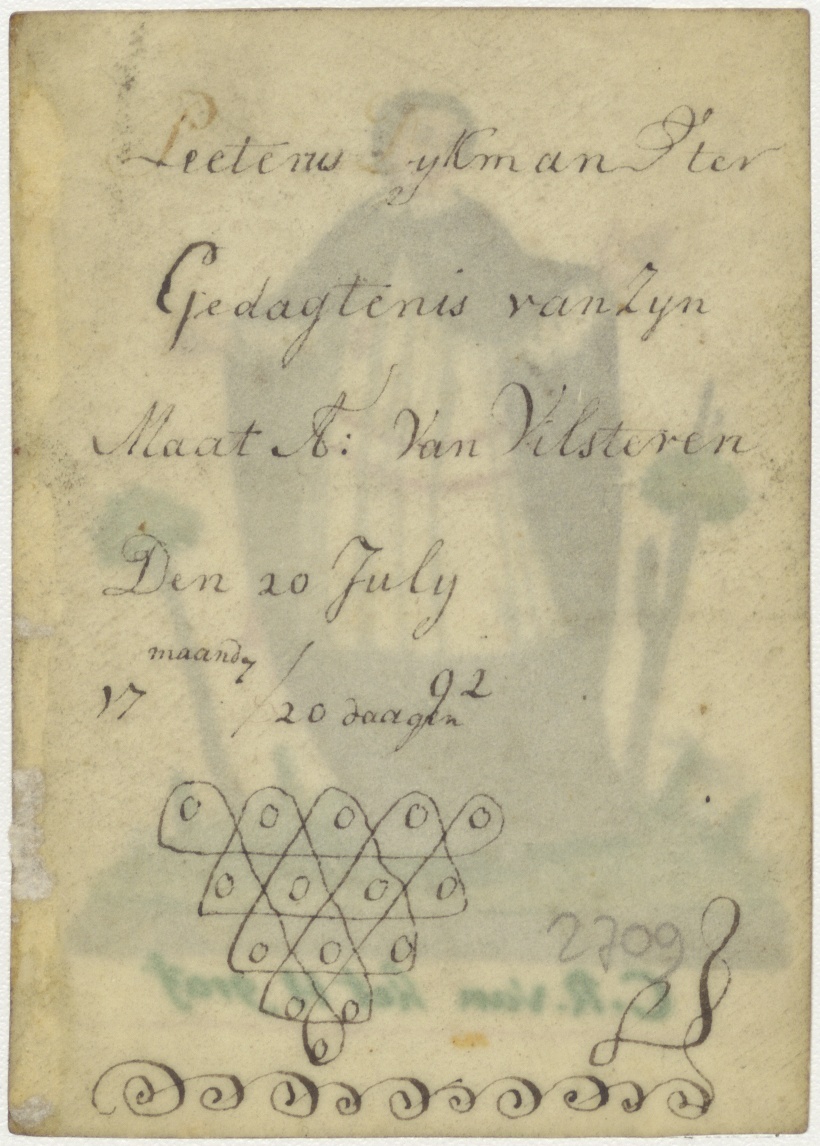 Peeterus Dykman Pter
Gedagtenis van Zyn
Maat A: Van Vilsteren
Den 20 July
17 maand/20 daagen 92
2709